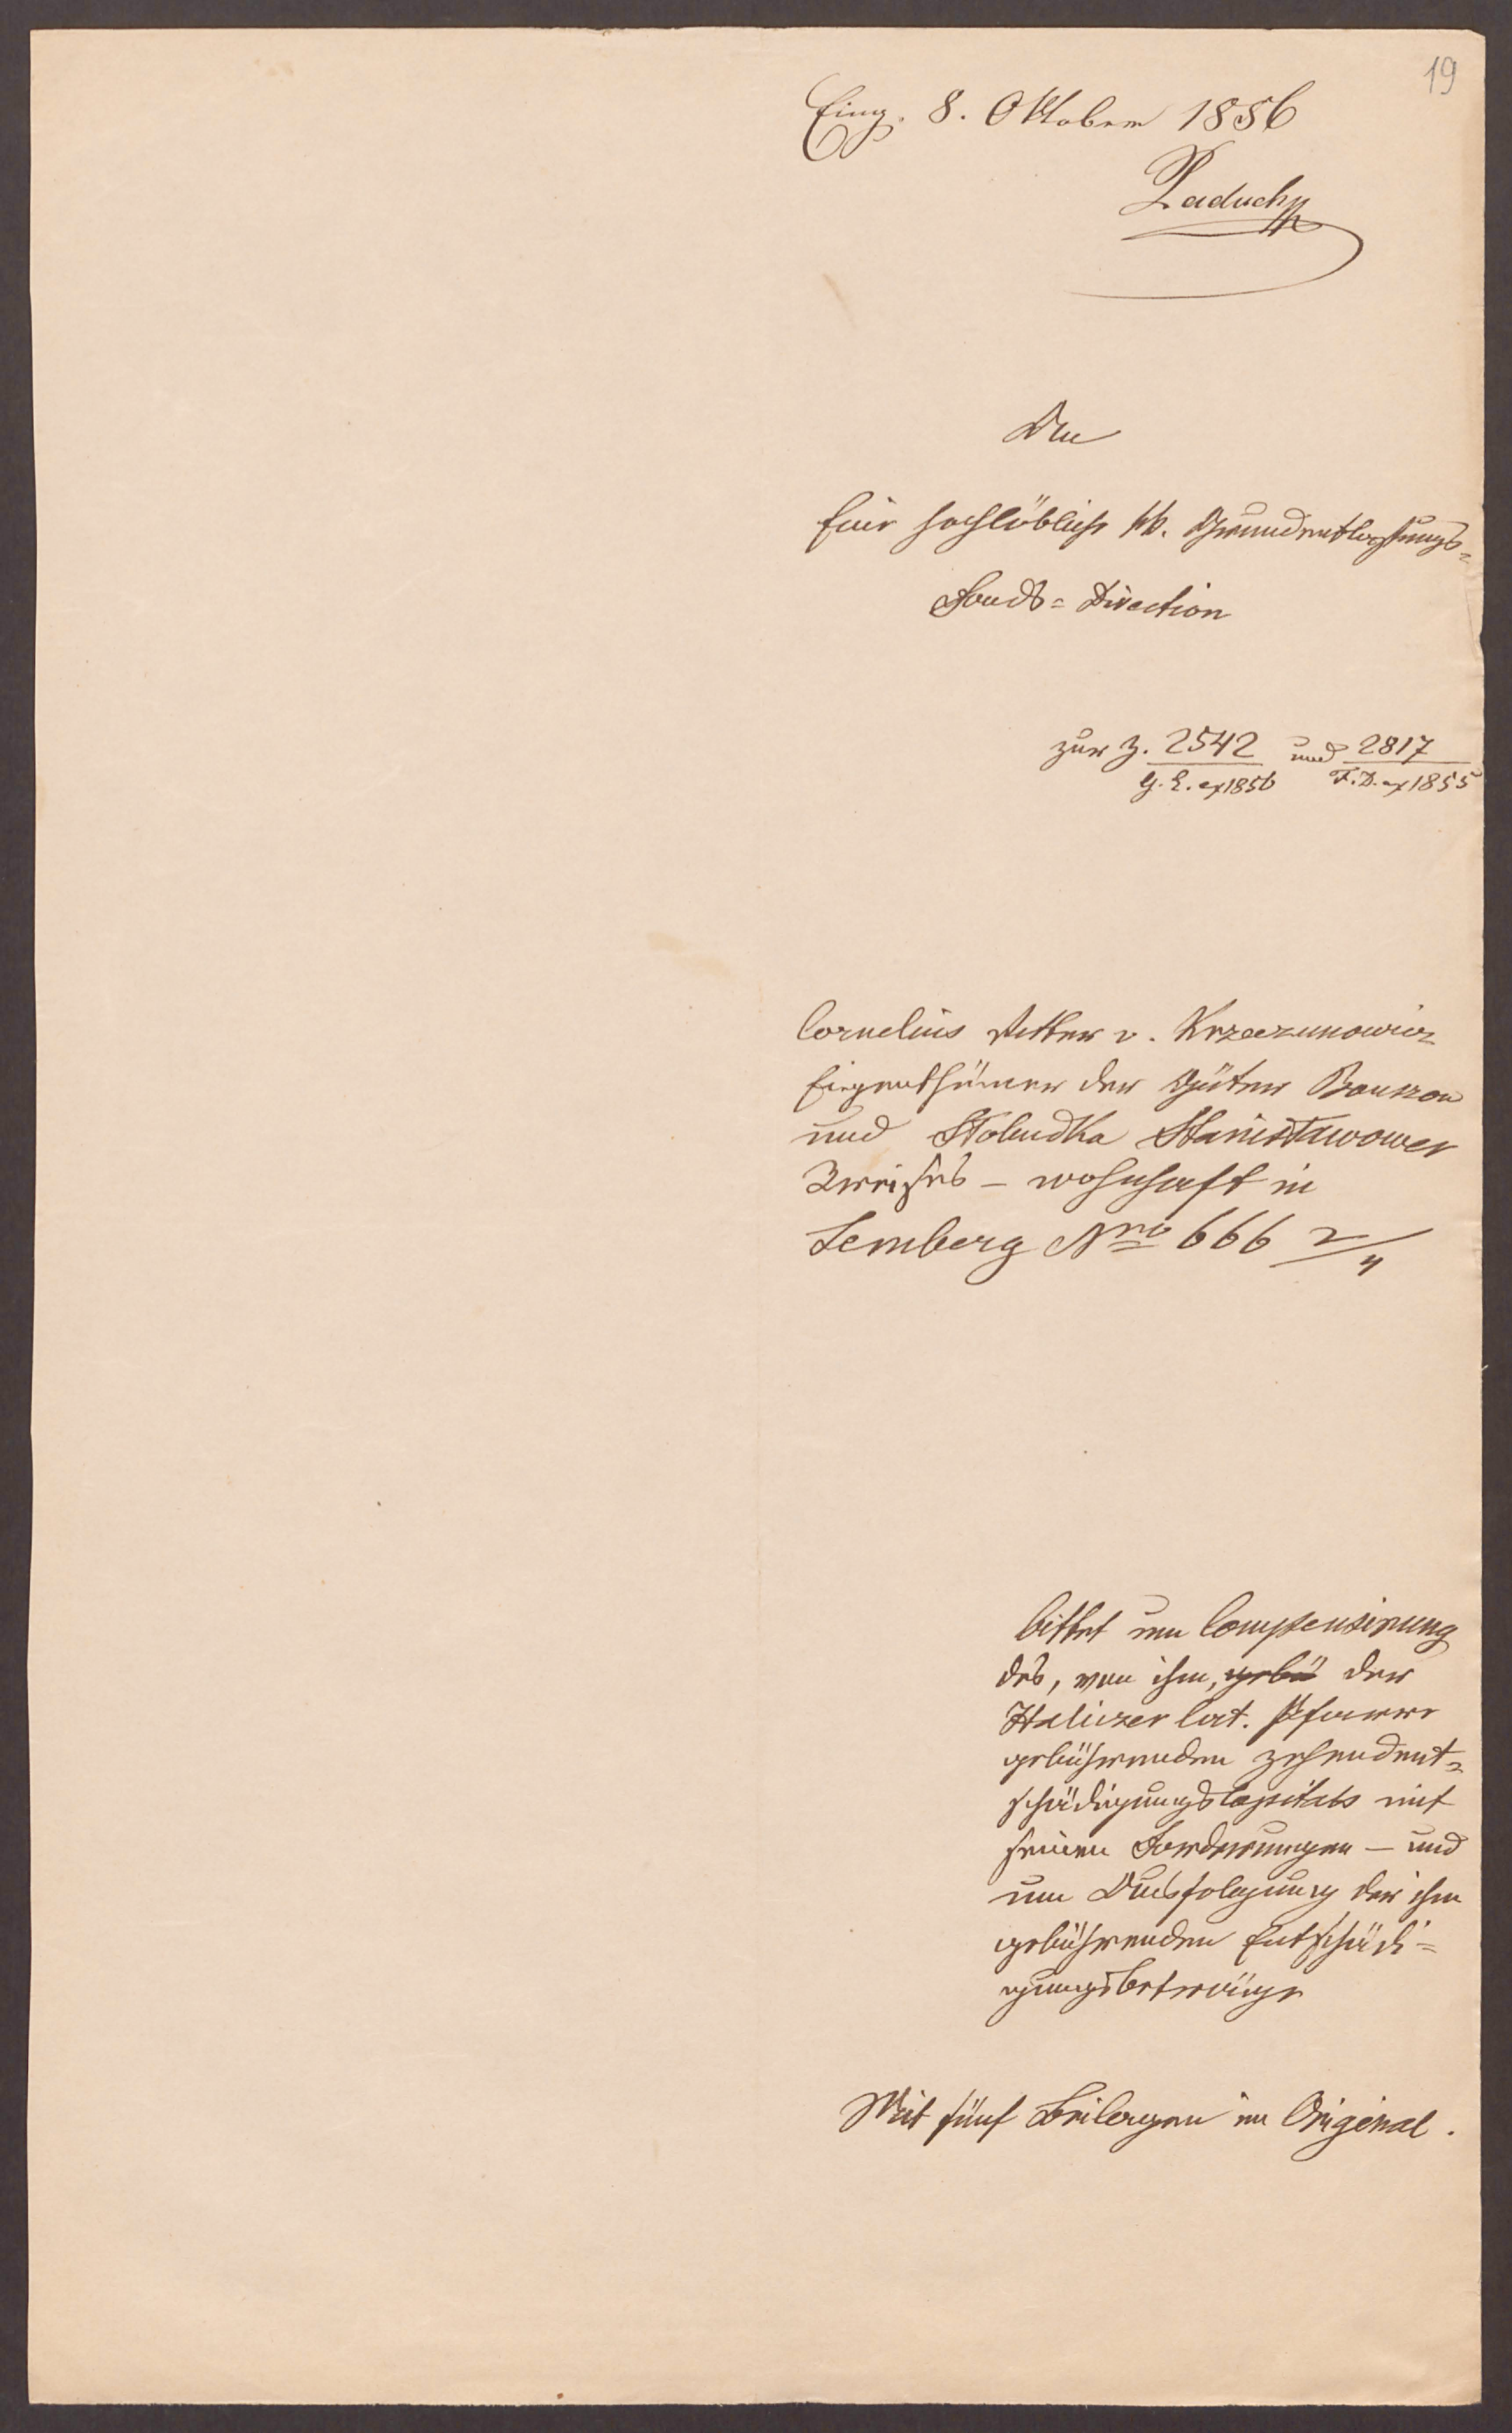 19
Eing. 8. Oktober 1856
Laduchy
An
Eine hochlöbliche kk. Grundentlastungs=
Fonds=Direction
zur Z. 2542 und 2817
G. E. ex 1856 F. D. ex 1855
Cornelius Ritter v. Krzeczunowicz
Eigenthümer der Güter Bouszow
und Skoludka Stanisławower
Kreises – wohnhaft in
Lemberg Nro 666 2/4
bittet um Compensirung
des, von ihm, gebü der
Haliczer lat. Pfarre
gebührenden Zehendent=
schädigungskapitals mit
seinen Forderungen – und
um Ausfolgung der ihm
gebührenden Entschädi=
gungsbeträge
Mit fünf Beilagen im Original.